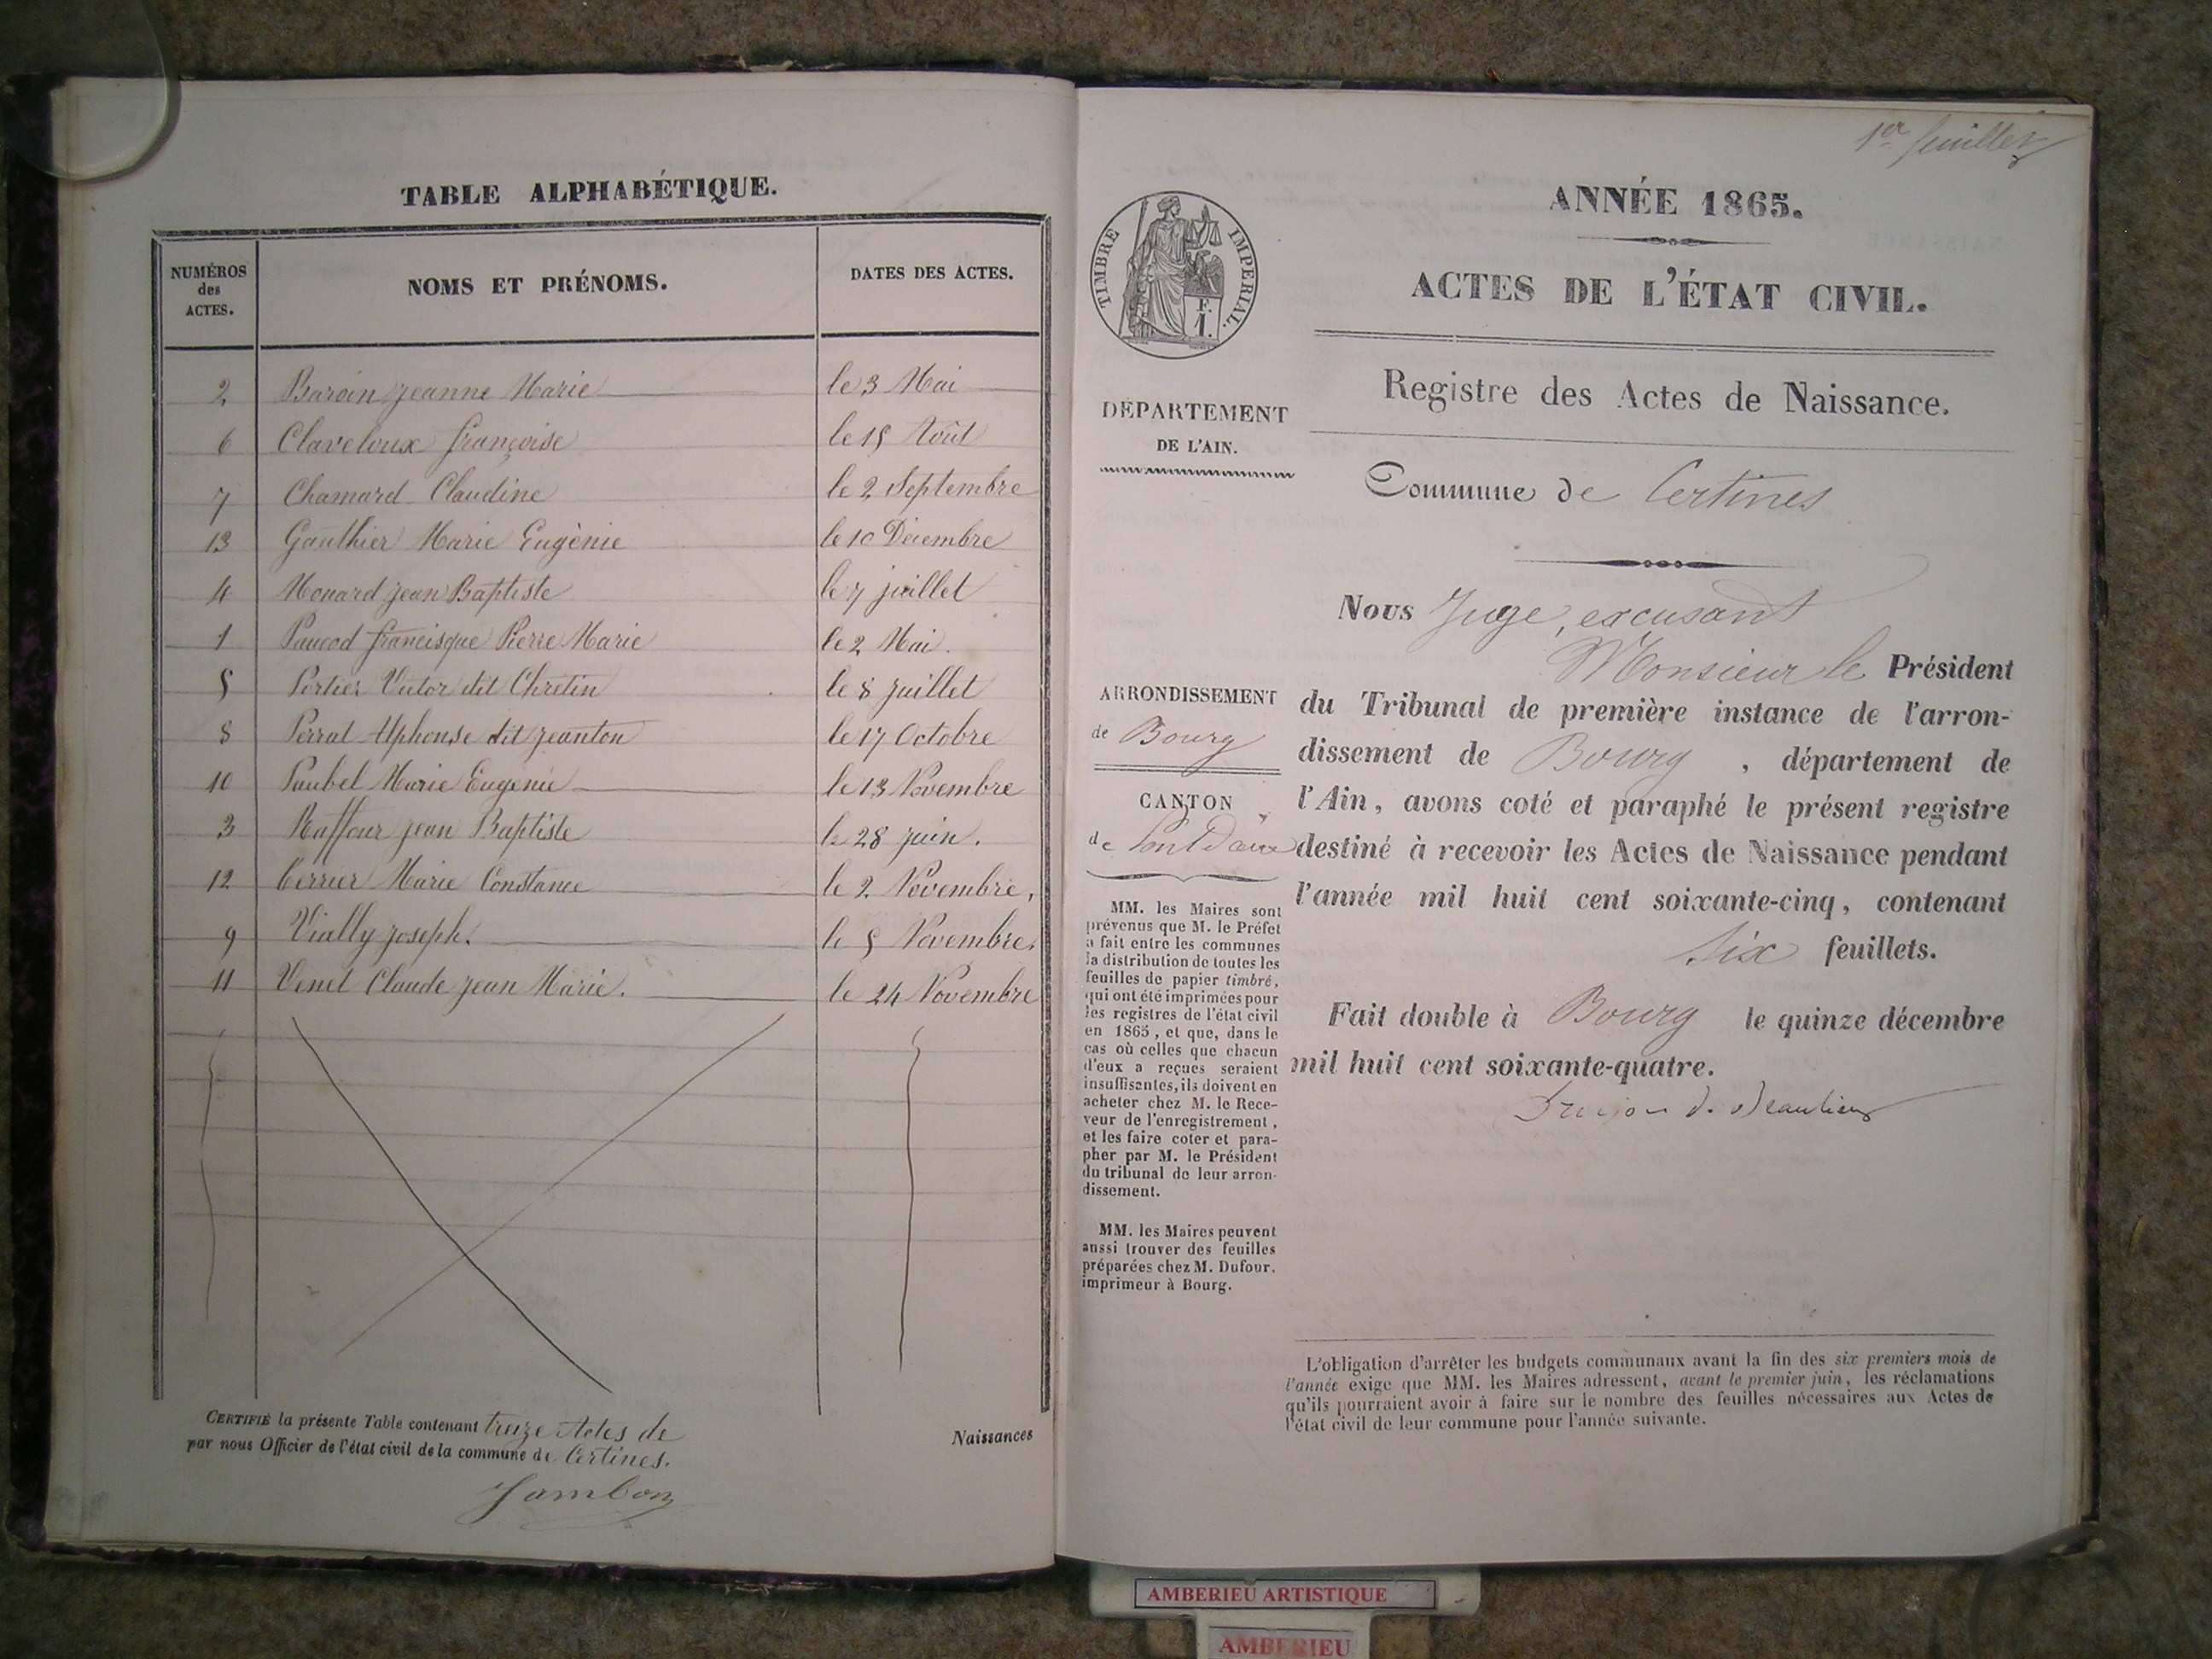 TABLE ALPHABÉTIQUE.
NUMÉROS des ACTES.
NOMS ET PRÉNOMS.
DATES DES ACTES.
2 Baroin jeanne Marie le 3 Mai
6 Claveloux françoise le 15 Août
7 Chamard Claudine le 2 Septembre
13 Gauthier Marie Eugènie le 10 Décembre
4 Monard jean Baptiste le 7 juillet
1 Paucod francisque Pierre Marie le 2 Mai.
5 Portier Victor dit Chretin le 8 juillet
8 Perrat Alphonse dit jeanton le 17 Octobre
10 Paubel Marie Eugenie le 13 Novembre
3 Raffour jean Baptiste le 28 juin.
12 Marie Constance le 2 Novembre,
9 Vially joseph. le 5 Novembre,
11 Venet Claude jean Marie. le 24 Novembre
CERTIFIÉ la présente Table contenant treize Actes de Naissances
par nous Officier de l'état civil de la commune de Certines.
Jambon
1er feuillet
ANNÉE 1865.
ACTES DE L'ÉTAT CIVIL.
TIMBRE IMPÉRIAL.
F.
1.
Registre des Actes de Naissance.
DÉPARTEMENT
DE L'AIN.
Commune de Certines
Nous Juge, excusant
Monsieur le Président
du Tribunal de première instance de l'arron-
dissement de Bourg, département de
l'Ain, avons coté et paraphé le présent registre
destiné à recevoir les Actes de Naissance pendant
l'année mil huit cent soixante-cinq, contenant
six feuillets.
Fait double à Bourg le quinze décembre
mil huit cent soixante-quatre.
de Beaulieu
ARRONDISSEMENT
de Bourg
CANTON
de Pont d'ain
MM. les Maires sont
prévenus que M. le Préfet
a fait entre les communes
la distribution de toutes les
feuilles de papier timbré,
qui ont été imprimées pour
les registres de l'état civil
en 1865, et que, dans le
cas où celles que chacun
d'eux a reçues seraient
insuffisantes, ils doivent en
acheter chez M. le Rece-
veur de l'enregistrement,
et les faire coter et para-
pher par M. le Président
du tribunal de leur arron-
dissement.
MM. les Maires peuvent
aussi trouver des feuilles
préparées chez M. Dufour,
imprimeur à Bourg.
L'obligation d'arrêter les budgets communaux avant la fin des six premiers mois de
l'année exige que MM. les Maires adressent, avant le premier juin, les réclamations
qu'ils pourraient avoir à faire sur le nombre des feuilles nécessaires aux Actes de
l'état civil de leur commune pour l'année suivante.
AMBERIEU ARTISTIQUE
AMBERIEU